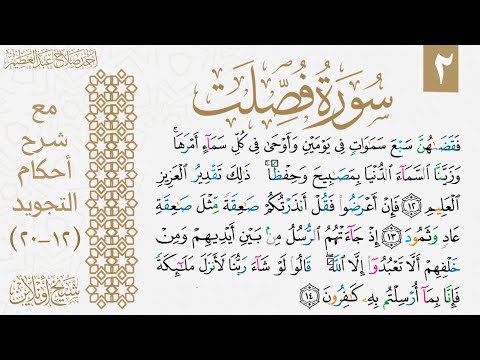 ٢
سورة فصلت
أحمد صلاح عبد العظيم
مع
شرح
أحكام
التجويد
(١٢-٢٠)
شيخ أونلاين
فَقَضَىٰهُنَّ سَبْعَ سَمَٰوَاتٍ فِى يَوْمَيْنِ وَأَوْحَىٰ فِى كُلِّ سَمَآءٍ أَمْرَهَا ۚ
وَزَيَّنَّا ٱلسَّمَآءَ ٱلدُّنْيَا بِمَصَٰبِيحَ وَحِفْظًا ۚ ذَٰلِكَ تَقْدِيرُ ٱلْعَزِيزِ
ٱلْعَلِيمِ ﴿١٢﴾ فَإِنْ أَعْرَضُوا۟ فَقُلْ أَنذَرْتُكُمْ صَٰعِقَةً مِّثْلَ صَٰعِقَةِ
عَادٍ وَثَمُودَ ﴿١٣﴾ إِذْ جَآءَتْهُمُ ٱلرُّسُلُ مِنۢ بَيْنِ أَيْدِيهِمْ وَمِنْ
خَلْفِهِمْ أَلَّا تَعْبُدُوٓا۟ إِلَّا ٱللَّهَ ۖ قَالُوا۟ لَوْ شَآءَ رَبُّنَا لَأَنزَلَ مَلَٰٓئِكَةً
فَإِنَّا بِمَآ أُرْسِلْتُم بِهِۦ كَٰفِرُونَ ﴿١٤﴾